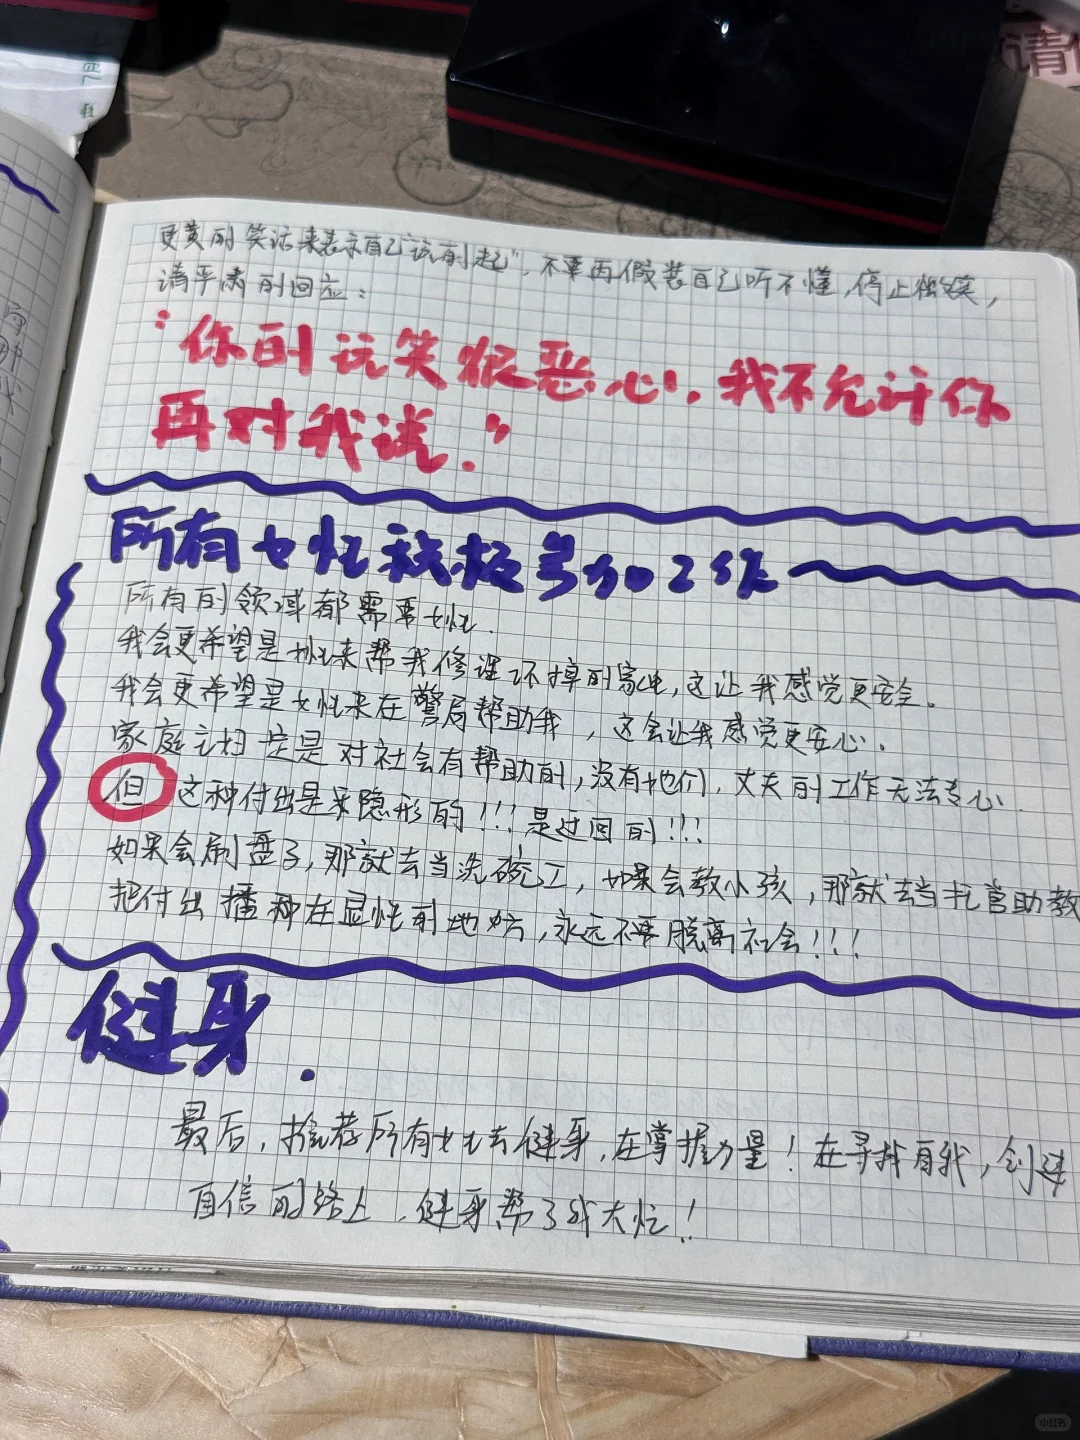 更黄的笑话来表示自己"玩的起"，不要再假装自己听不懂，停止微笑，
请平淡的回应：
"你的玩笑很恶心，我不允许你
再对我说."
所有女性积极参加工作
所有的领域都需要女性.
我会更希望是女性来帮我修理坏掉的家电，这让我感觉更安全。
我会更希望是女性来在警局帮助我，这会让我感觉更安心.
家庭主妇一定是对社会有帮助的，没有她们，丈夫的工作无法专心.
但 这种付出是采隐形的!!!是过回的!!!
如果会刷盘子，那就去当洗碗工，如果会教小孩，那就去当托管助教
把付出播种在显性的地方，永远不要脱离社会!!!
健身.
最后，推荐所有女性去健身，在掌握力量！在寻找自我，创建
自信的路上，健身帮了我大忙！
请
小红书